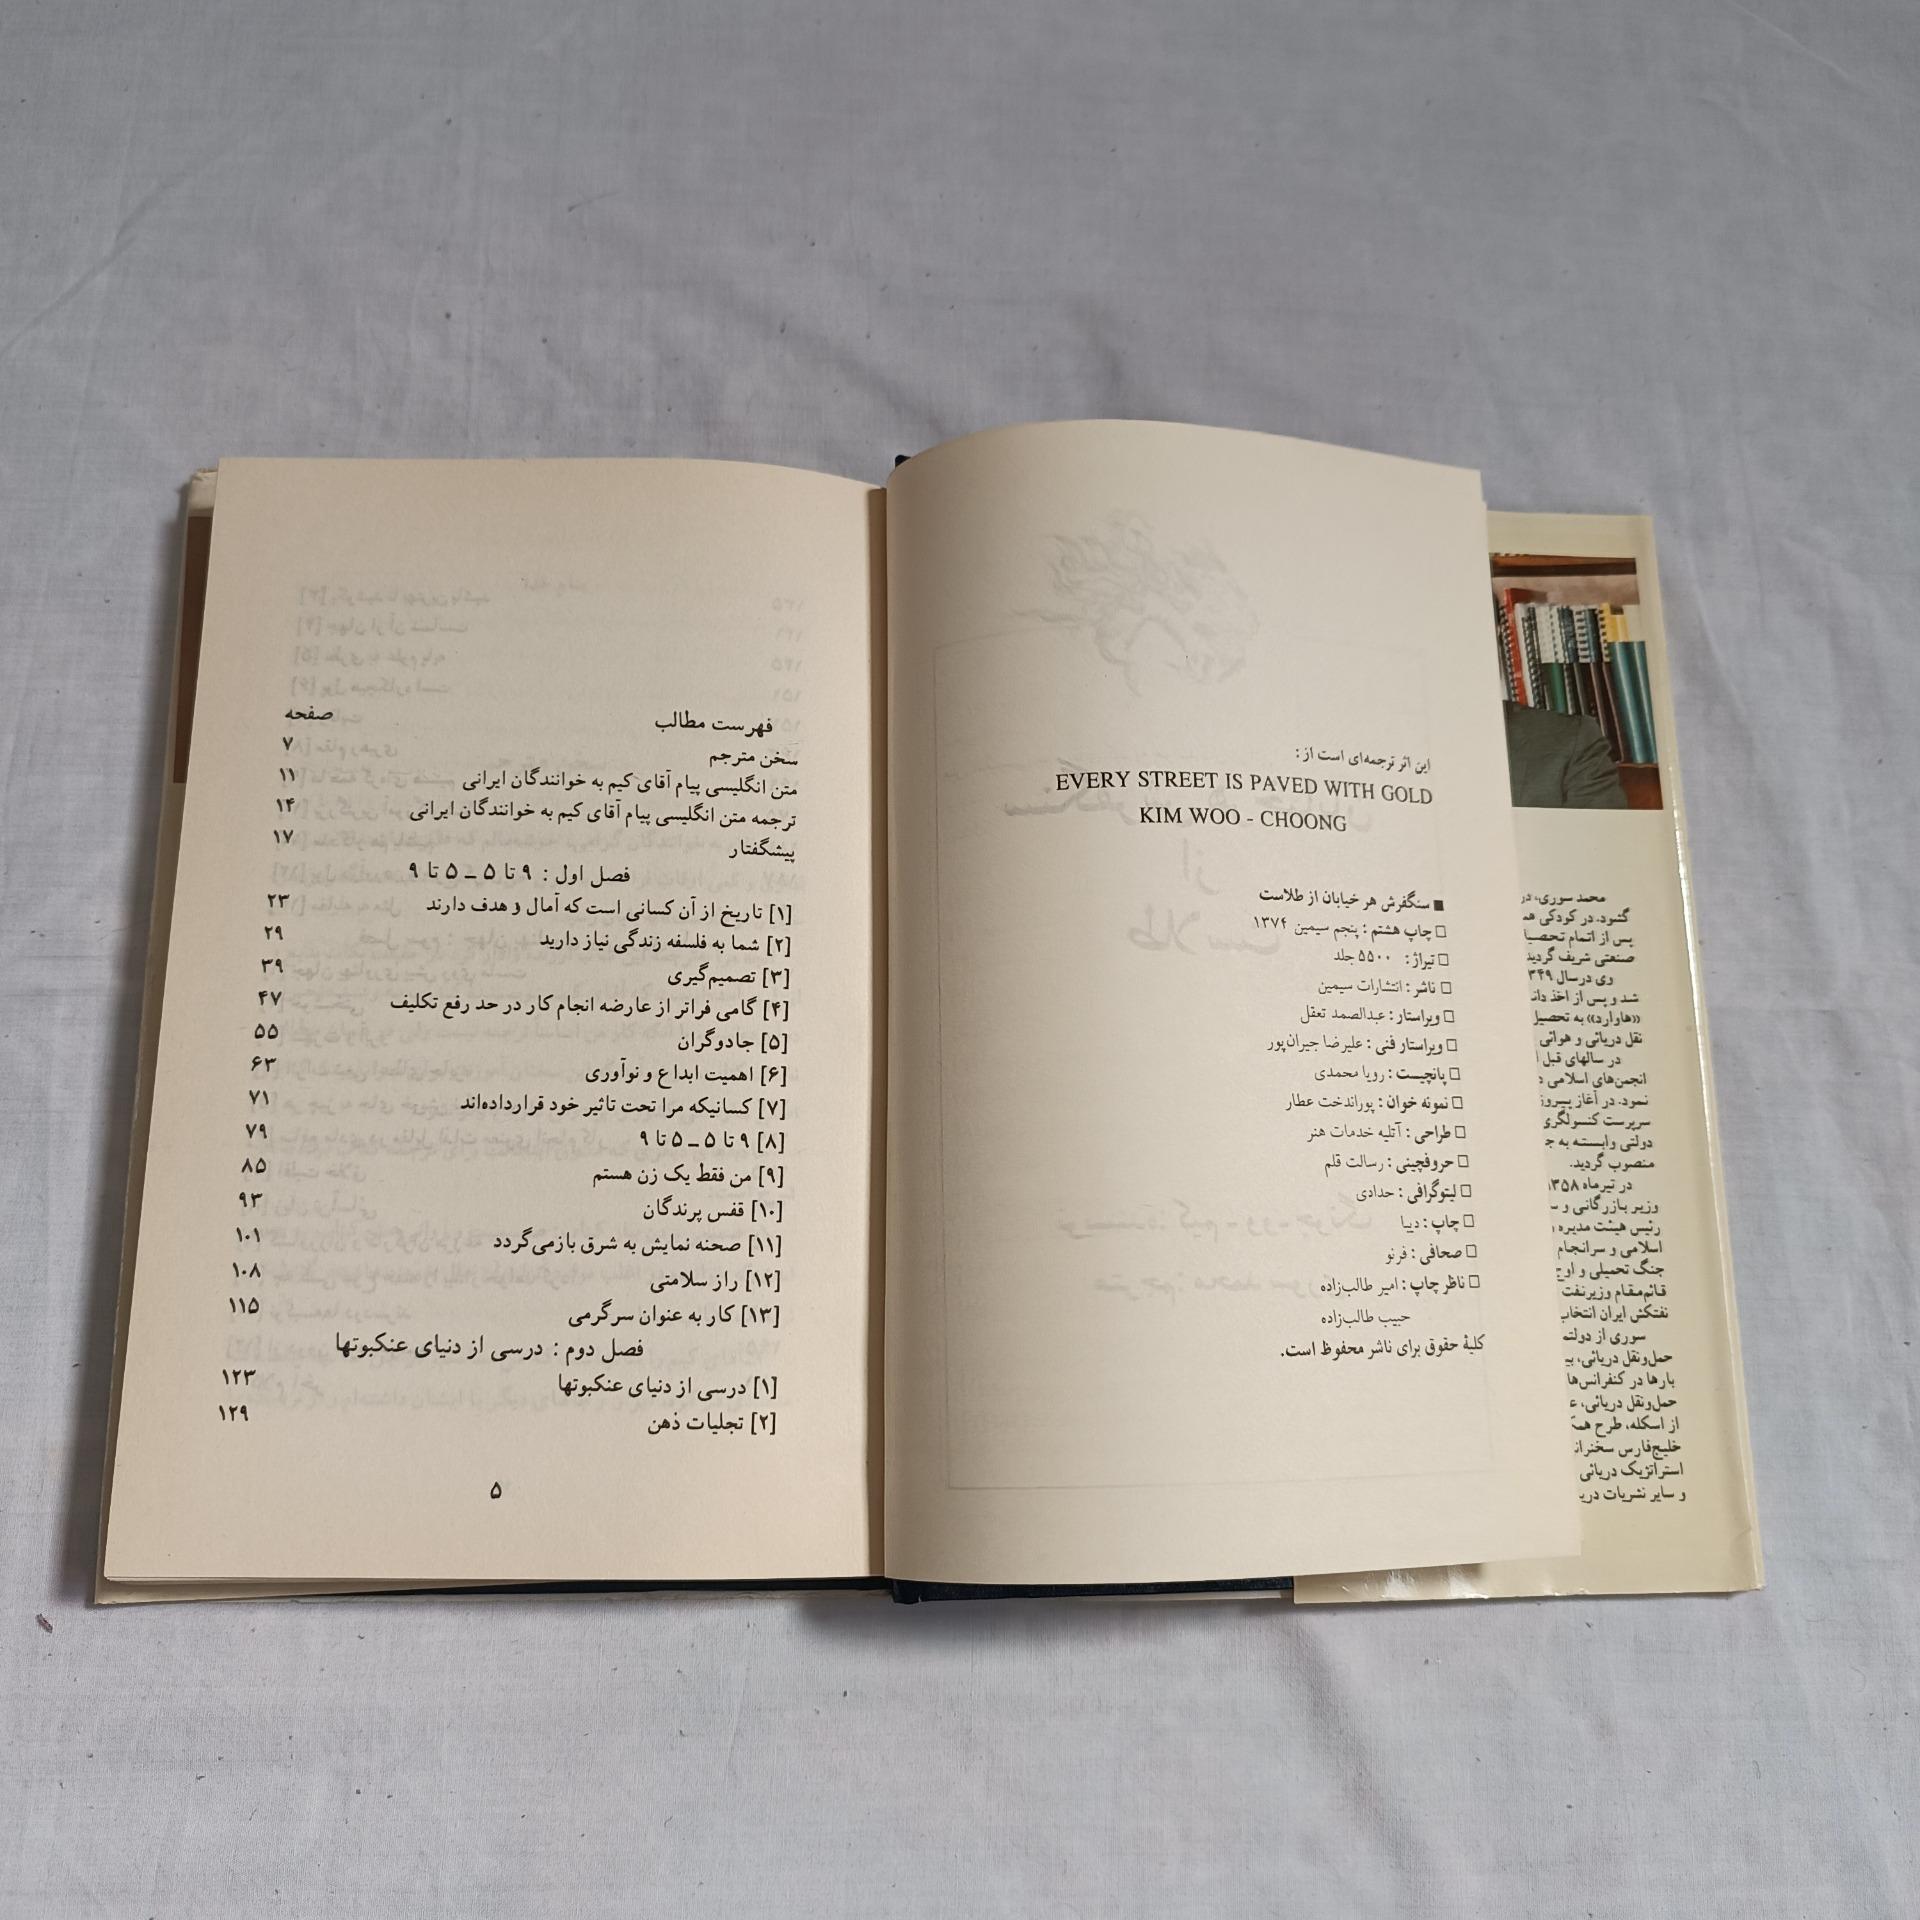 این اثر ترجمه‌ای است از:
EVERY STREET IS PAVED WITH GOLD
KIM WOO - CHOONG
■ سنگفرش هر خیابان از طلاست
□ چاپ هشتم: پنجم سیمین ۱۳۷۴
□ تیراژ: ۵۵۰۰ جلد
□ ناشر: انتشارات سیمین
□ ویراستار: عبدالصمد تعقل
□ ویراستار فنی: علیرضا جیران‌پور
□ پانچیست: رویا محمدی
□ نمونه خوان: پوراندخت عطار
□ طراحی: آتلیه خدمات هنر
□ حروفچینی: رسالت قلم
□ لیتوگرافی: حدادی
□ چاپ: دیبا
□ صحافی: فرنو
□ ناظر چاپ: امیر طالب‌زاده
حبیب طالب‌زاده
کلیهٔ حقوق برای ناشر محفوظ است.
فهرست مطالب صفحه
سخن مترجم ۷
متن انگلیسی پیام آقای کیم به خوانندگان ایرانی ۱۱
ترجمه متن انگلیسی پیام آقای کیم به خوانندگان ایرانی ۱۴
پیشگفتار ۱۷
فصل اول: ۹ تا ۵ ــ ۵ تا ۹
[۱] تاریخ از آن کسانی است که آمال و هدف دارند ۲۳
[۲] شما به فلسفه زندگی نیاز دارید ۲۹
[۳] تصمیم‌گیری ۳۹
[۴] گامی فراتر از عارضه انجام کار در حد رفع تکلیف ۴۷
[۵] جادوگران ۵۵
[۶] اهمیت ابداع و نوآوری ۶۳
[۷] کسانیکه مرا تحت تاثیر خود قرارداده‌اند ۷۱
[۸] ۹ تا ۵ ــ ۵ تا ۹ ۷۹
[۹] من فقط یک زن هستم ۸۵
[۱۰] قفس پرندگان ۹۳
[۱۱] صحنه نمایش به شرق بازمی‌گردد ۱۰۱
[۱۲] راز سلامتی ۱۰۸
[۱۳] کار به عنوان سرگرمی ۱۱۵
فصل دوم: درسی از دنیای عنکبوتها
[۱] درسی از دنیای عنکبوتها ۱۲۳
[۲] تجلیات ذهن ۱۲۹
۵
محمد سوری، در
گشود. در کودکی
پس از اتمام
صنعتی شریف گردید
وی درسال
شد و پس از اخذ
«هاوارد» به تحصیل
نقل دریائی و هوائی
در سالهای قبل
انجمن‌های اسلامی
نمود. در آغاز
سرپرست کنسولگری
دولتی وابسته به
منصوب گردید.
در تیرماه ۱۳۵۸
وزیر بازرگانی و
رئیس هیئت مدیره
اسلامی و سرانجام
جنگ تحمیلی و اوج
قائم‌مقام وزیرنفت
نفتکش ایران
سوری از
حمل‌ونقل دریائی،
بارها در کنفرانس‌ها
حمل‌ونقل دریائی،
از اسکله، طرح
خلیج‌فارس
استراتژیک دریائی
و سایر نشریات